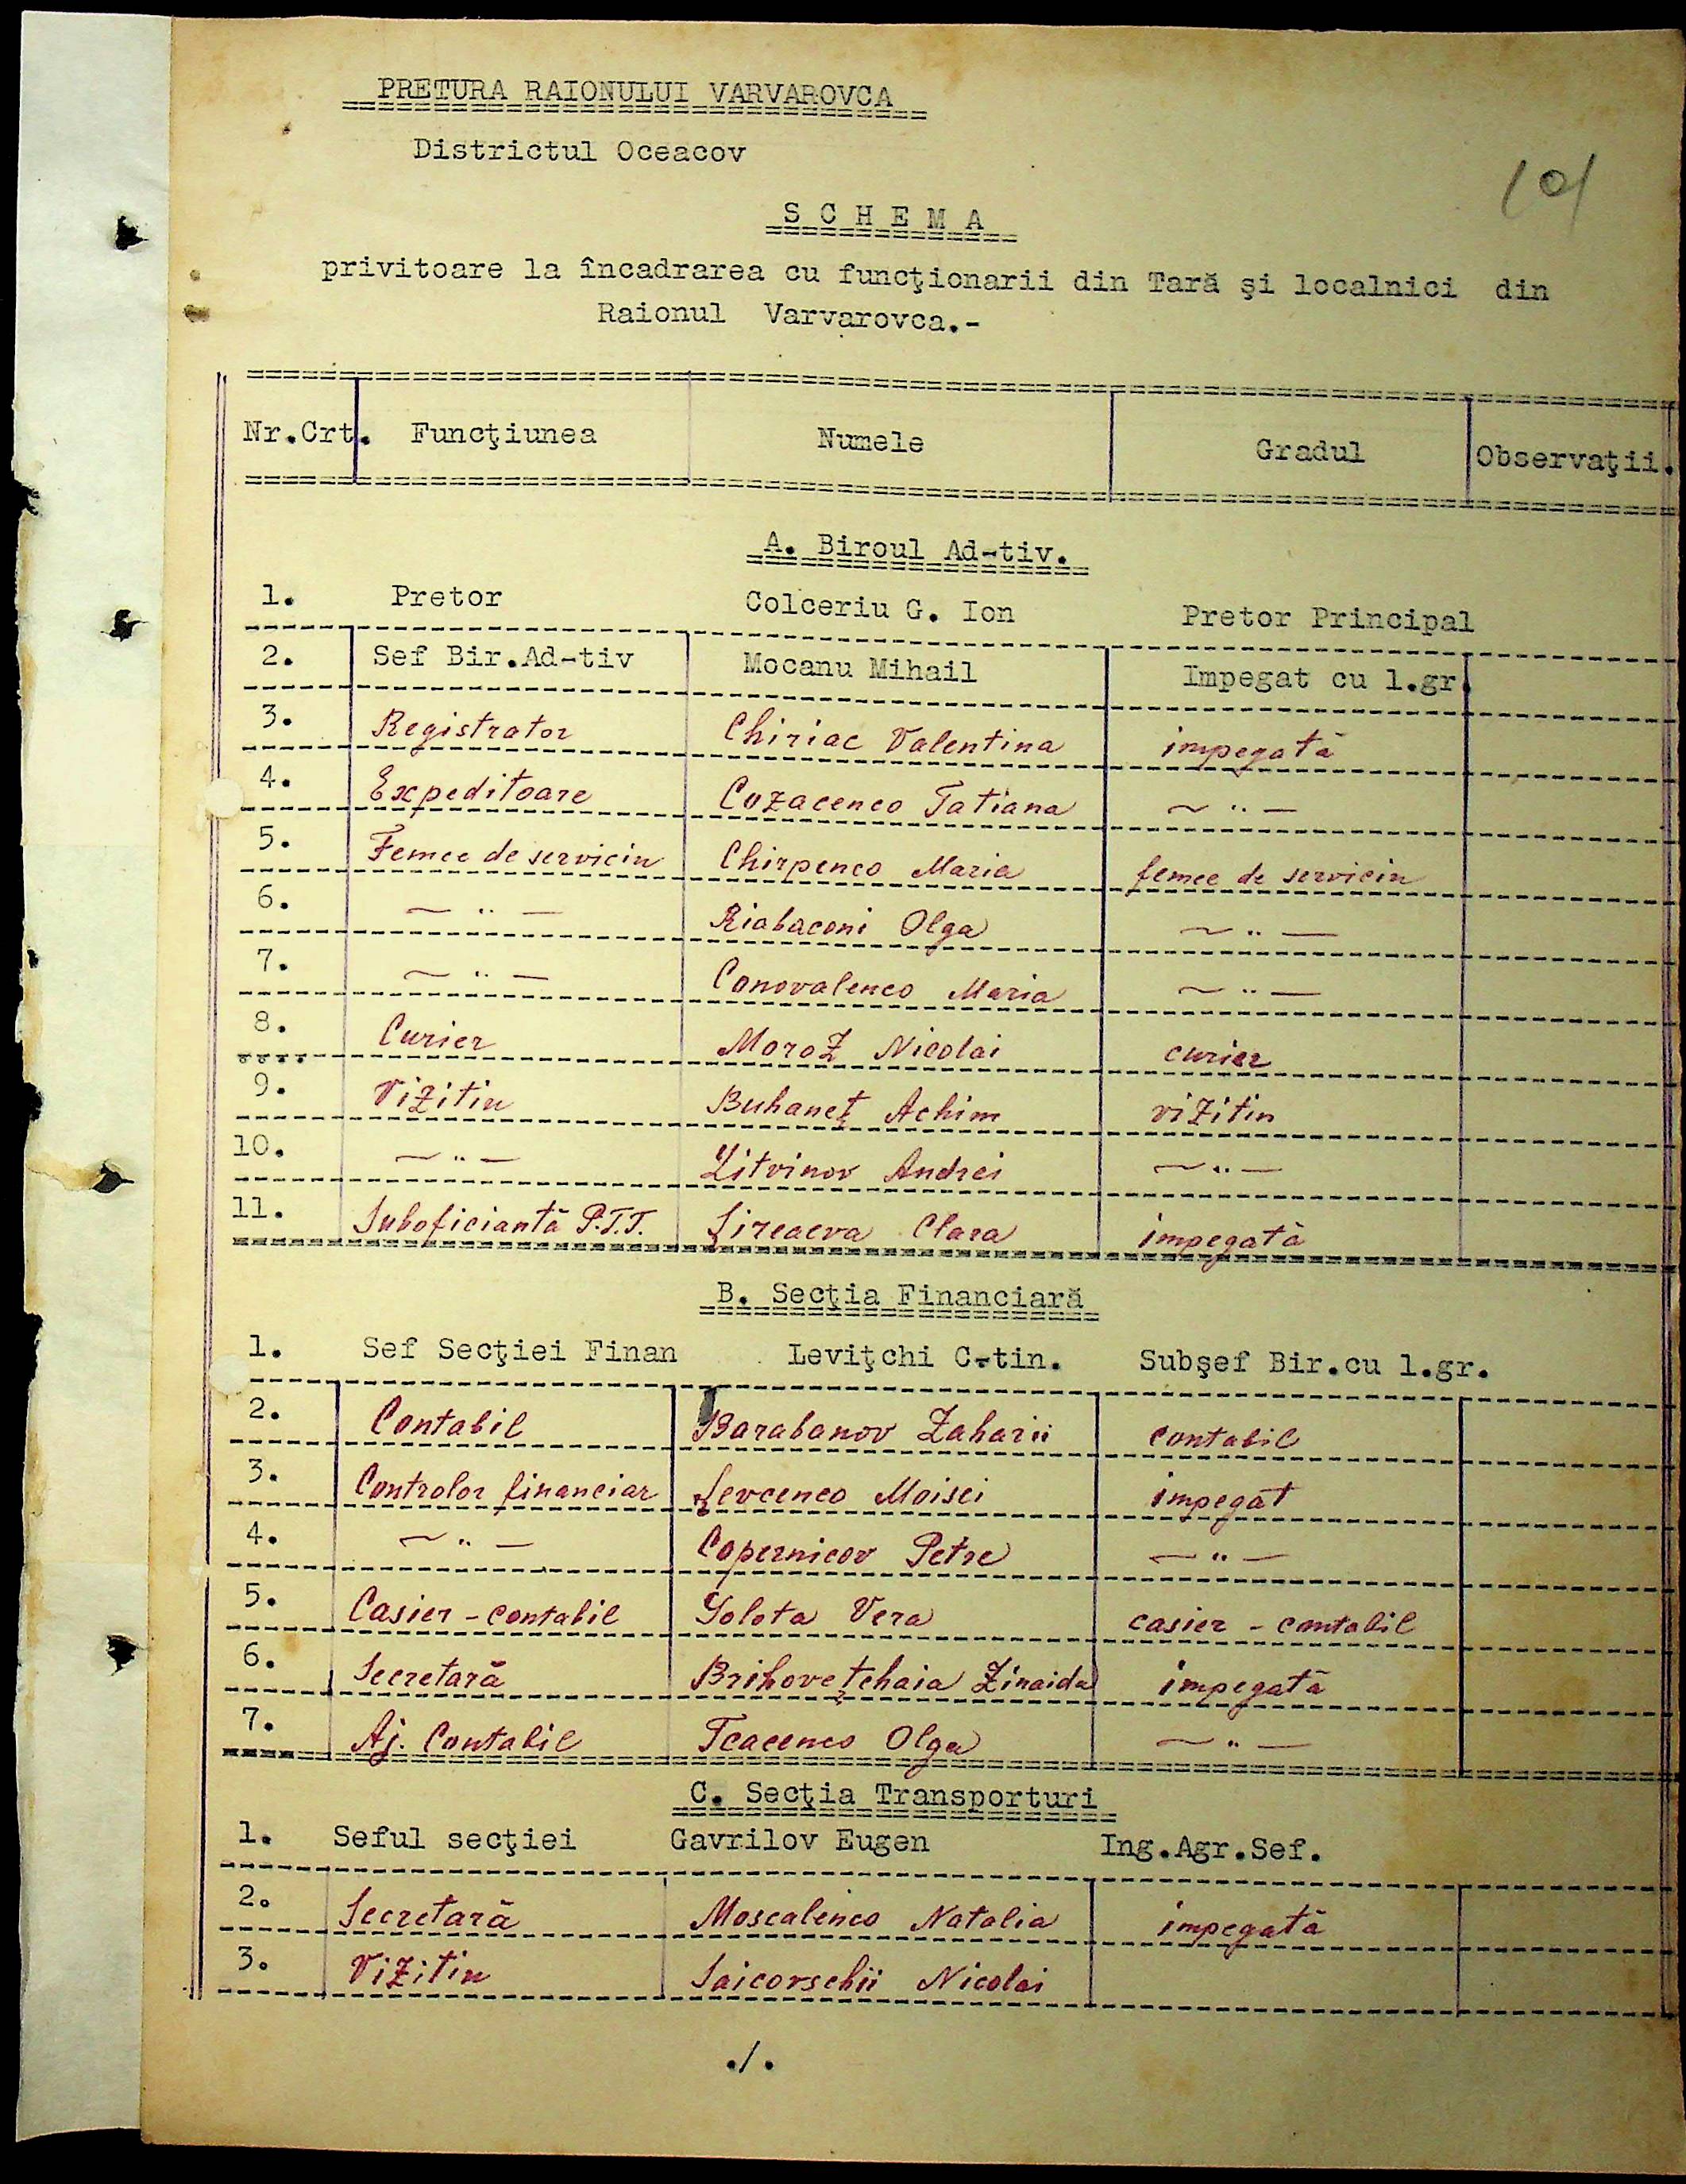 PRETURA RAIONULUI VARVAROVCA
Districtul Oceacov
101
S C H E M A
privitoare la încadrarea cu funcţionarii din Tară şi localnici din
Raionul Varvarovca.-
Nr.Crt. Funcţiunea Numele Gradul Observaţii.
A. Biroul Ad-tiv.
1. Pretor Colceriu G. Ion Pretor Principal
2. Sef Bir.Ad-tiv Mocanu Mihail Impegat cu l.gr.
3. Registrator Chiriac Valentina impegată
4. Expeditoare Cozacenco Tatiana — " —
5. Femee de serviciu Chirpenco Maria femee de serviciu
6. — " — Riabaconi Olga — " —
7. — " — Conovalenco Maria — " —
8. Curier Moroz Nicolai curier
9. Vizitiu Buhaneţ Achim vizitiu
10. — " — Litvinov Andrei — " —
11. Suboficiantă P.T.T. Şireaeva Clara impegată
B. Secţia Financiară
1. Sef Secţiei Finan Leviţchi C-tin. Subşef Bir.cu l.gr.
2. Contabil Barabanov Zaharii contabil
3. Controlor financiar Şevcenco Moisei impegat
4. — " — Copernicov Petre — " —
5. Casier - contabil Golota Vera casier - contabil
6. Secretară Brihoveţchaia Zinaida impegată
7. Aj. Contabil Tcacenco Olga — " —
C. Secţia Transporturi
1. Seful secţiei Gavrilov Eugen Ing.Agr.Sef.
2. Secretară Moscalenco Natalia impegată
3. Vizitiu Saicovschii Nicolai
./.